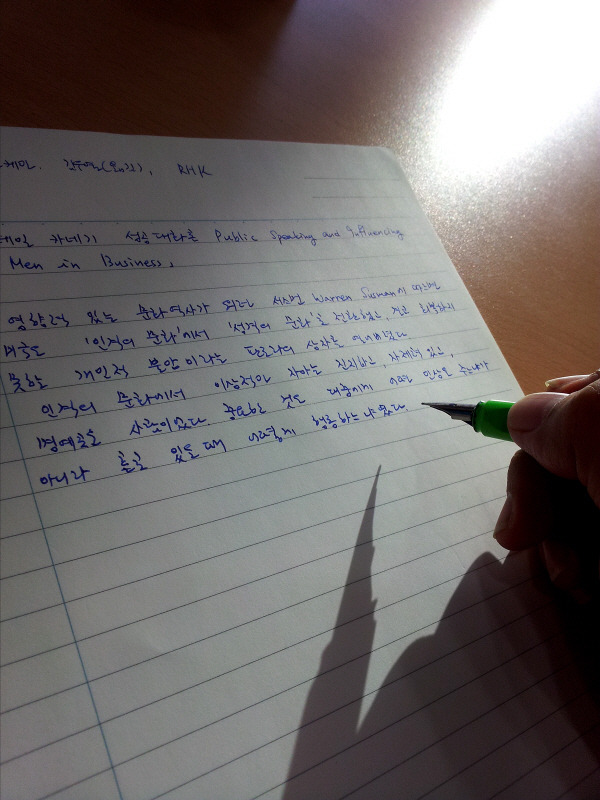 케인. 김우열(옮김), RHK
데일 카네기 성공대화론 Public Speaking and Influencing
Men in Business,
영향력 있는 문화역사가 워런 서스먼 Warren Susman에 따르면
미국은 '인격의 문화'에서 '성격의 문화'로 전환했고, 결코 회복하지
못할 개인적 불안이라는 판도라의 상자를 열어버렸다
인격의 문화에서 이상적인 자아는 진지하고, 자제력 있고,
명예로운 사람이었다. 중요한 것은 대중에게 어떤 인상을 주느냐가
아니라 홀로 있을 때 어떻게 행동하느냐였다.